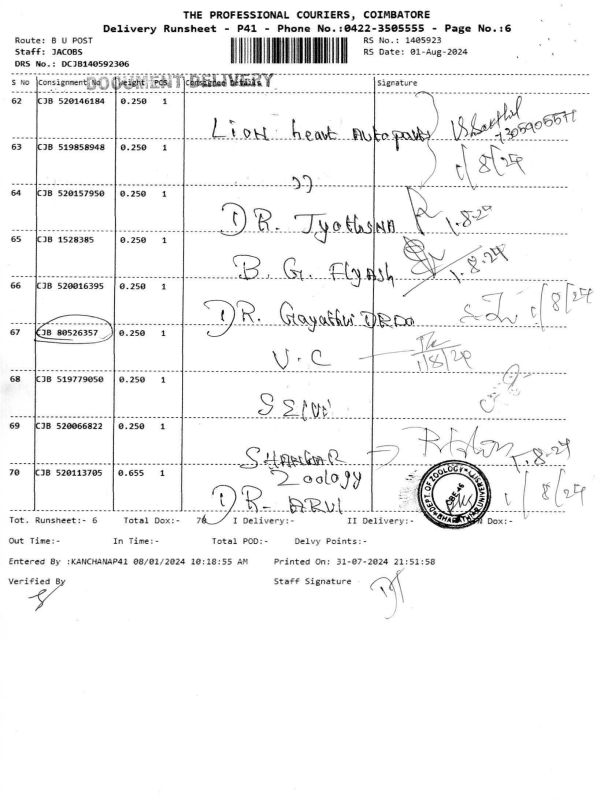 THE PROFESSIONAL COURIERS, COIMBATORE
Delivery Runsheet - P41 - Phone No.:0422-3505555 - Page No.:6
Route: B U POST RS No.: 1405923
Staff: JACOBS RS Date: 01-Aug-2024
DRS No.: DCJB140592306
DOCUMENT DELIVERY
S No Consignment No Weight PCS Consignee Details Signature
62 CJB 520146184 0.250 1
Lion heart Autoparts 7305905571
63 CJB 519858948 0.250 1 1/8/24
"
64 CJB 520157950 0.250 1
DR. Jyothsna 1.8.24
65 CJB 1528385 0.250 1
B. G. Flyash 1.8.24
66 CJB 520016395 0.250 1
DR. Gayathri DRDO 1/8/24
67 CJB 80526357 0.250 1
V.C 1/8/24
68 CJB 519779050 0.250 1
Selvi
69 CJB 520066822 0.250 1
Shankar 1.8.24
70 CJB 520113705 0.655 1 Zoology
DR. ARUL 1/8/24
DEPT. OF ZOOLOGY BHARATHIAR UNIVERSITY CBE-46
Tot. Runsheet:- 6 Total Dox:- 70 I Delivery:- II Delivery:- Dox:-
Out Time:- In Time:- Total POD:- Delvy Points:-
Entered By :KANCHANAP41 08/01/2024 10:18:55 AM Printed On: 31-07-2024 21:51:58
Verified By Staff Signature